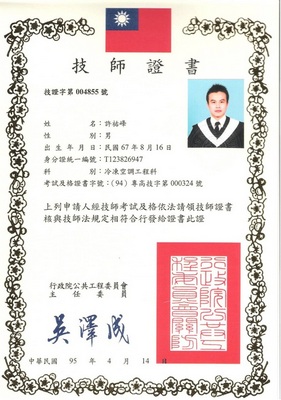 技師證書
技證字第 004855 號
姓名：許祐峰
性別：男
出生年月日：民國 67 年 8 月 16 日
身分證統一編號：T123826947
科別：冷凍空調工程科
考試及格證書字號：(94) 專高技字第 000324 號
上列申請人經技師考試及格依法請領技師證書
核與技師法規定相符合行發給證書此證
行政院公共工程委員會
主任委員
吳澤成
中華民國 95 年 4 月 14 日